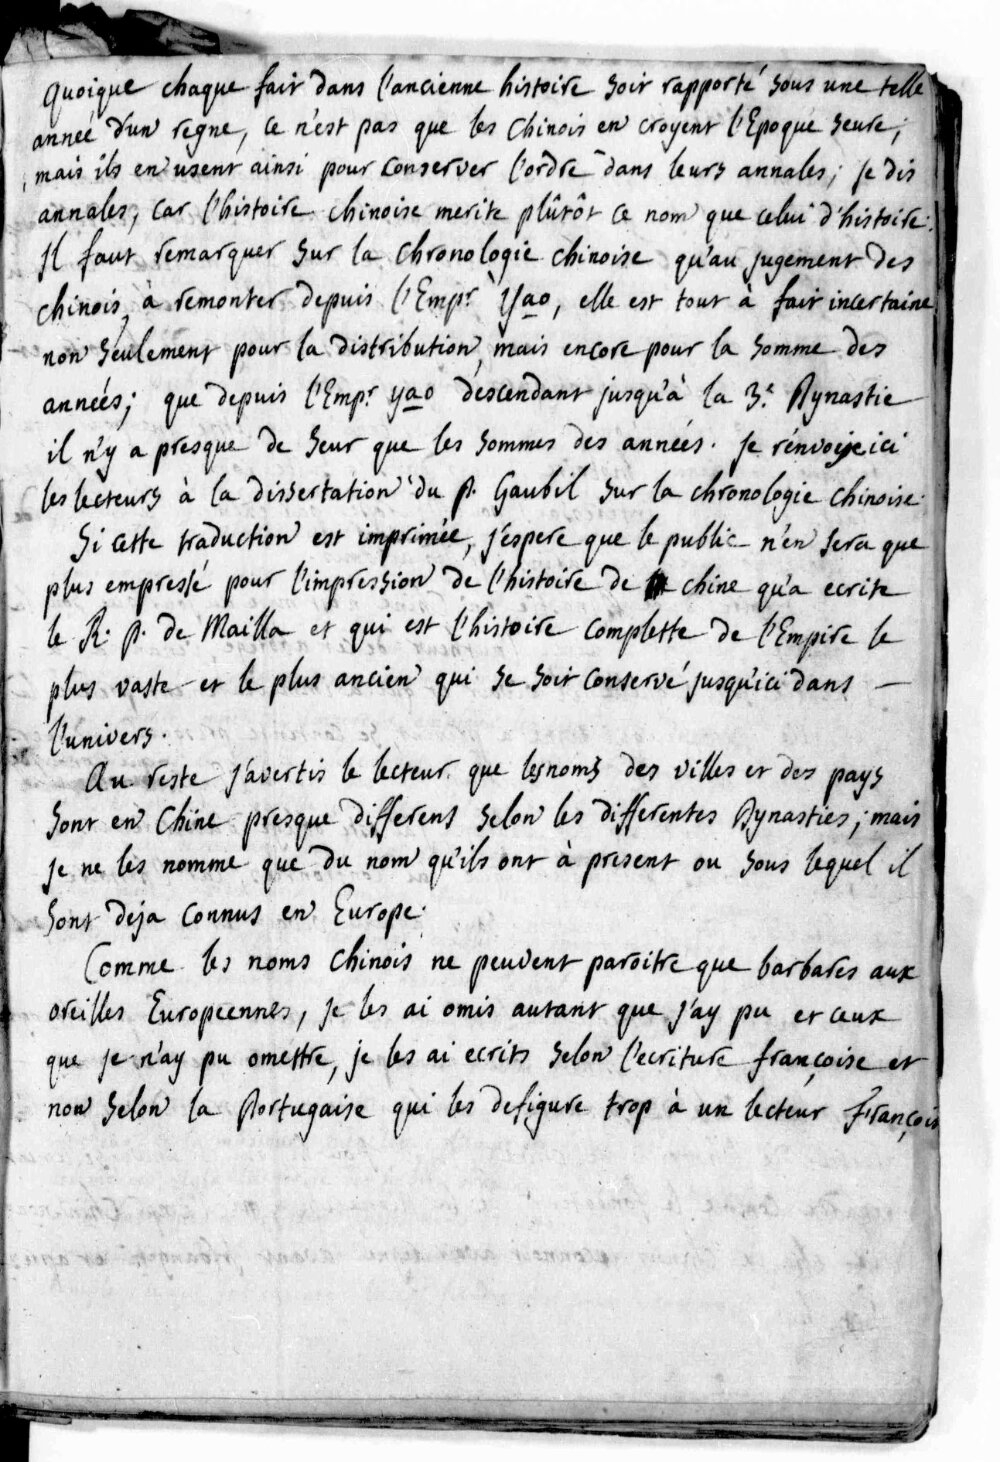 quoique chaque fait dans l'ancienne histoire soit rapporté sous une telle
année d'un regne, ce n'est pas que les chinois en croyent l'Epoque seure;
mais ils en usent ainsi pour conserver l'ordre dans leurs annales; je dis
annales, car l'histoire chinoise merite plûtôt ce nom que celui d'histoire.
Il faut remarquer sur la chronologie chinoise qu'au jugement des
chinois, à remonter depuis l'Empr. Yao, elle est tout à fait incertaine
non seulement pour la distribution, mais encore pour la somme des
années; que depuis l'Empr. yao descendant jusqu'à la 3e. Dynastie
il n'y a presque de seur que les sommes des années. Je renvoye ici
les lecteurs à la dissertation du p. Gaubil sur la chronologie chinoise.
Si cette traduction est imprimée, j'espere que le public n'en sera que
plus empressé pour l'impression de l'histoire de chine qu'a ecrite
le R. p. de Mailla et qui est l'histoire complette de l'Empire le
plus vaste et le plus ancien qui se soit conservé jusqu'ici dans
l'univers.
Au reste j'avertis le lecteur que les noms des villes et des pays
sont en Chine presque differens selon les differentes Dynasties; mais
je ne les nomme que du nom qu'ils ont à present ou sous lequel il
sont deja connus en Europe.
Comme les noms chinois ne peuvent paroitre que barbares aux
oreilles Europeennes, je les ai omis autant que j'ay pu et ceux
que je n'ay pu omettre, je les ai ecrits selon l'ecriture françoise et
non selon la Portugaise qui les defigure trop à un lecteur François